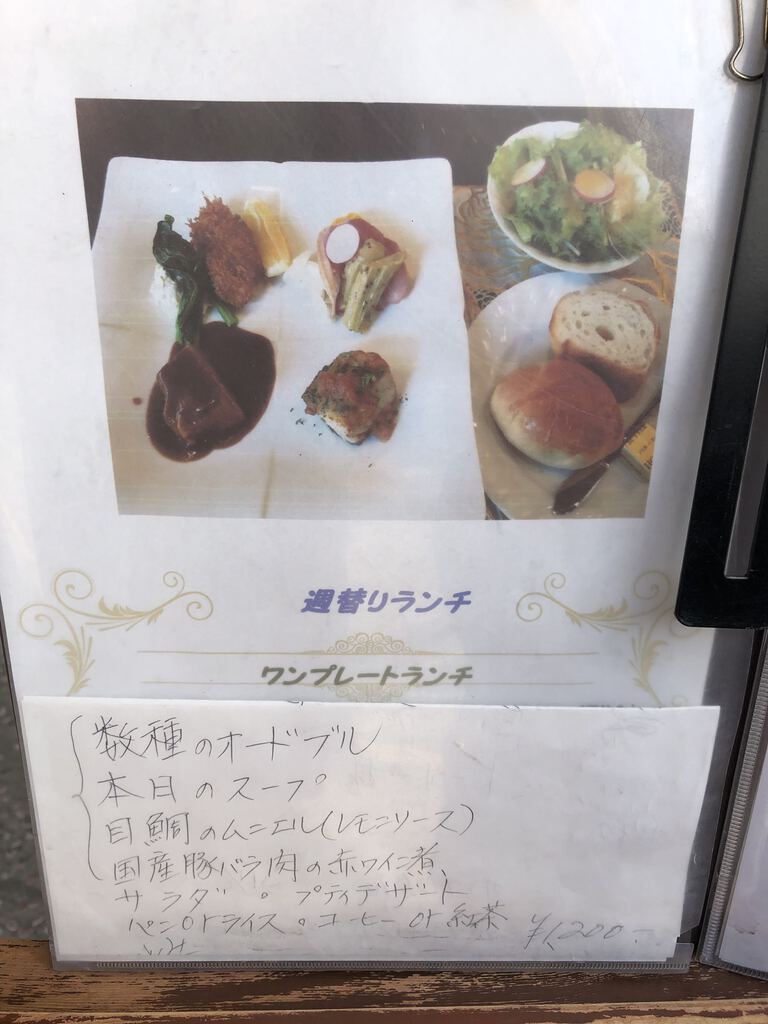 週替りランチ
ワンプレートランチ
数種のオードブル
本日のスープ
目鯛のムニエル(レモンソース)
国産豚バラ肉の赤ワイン煮
サラダ・プティデザート
パンorライス・コーヒーor紅茶
¥1,200-